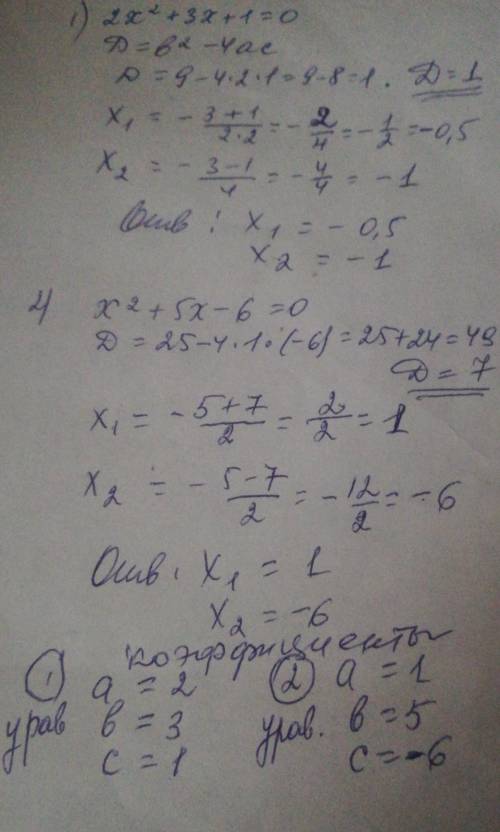 1) 2x² + 3x + 1 = 0
D = b² - 4ac
D = 9 - 4·2·1 = 9 - 8 = 1. D = 1
x₁ = - 3+1/2·2 = - 2/4 = - 1/2 = -0,5
x₂ = - 3-1/4 = - 4/4 = -1
Отв: x₁ = - 0,5
x₂ = - 1
2) x² + 5x - 6 = 0
D = 25 - 4·1·(-6) = 25 + 24 = 49
D = 7
x₁ = - 5+7/2 = 2/2 = 1
x₂ = - 5-7/2 = - 12/2 = -6
Отв: x₁ = 1
x₂ = -6
коэффициенты
1 a = 2 2 a = 1
урав b = 3 урав. b = 5
c = 1 c = -6